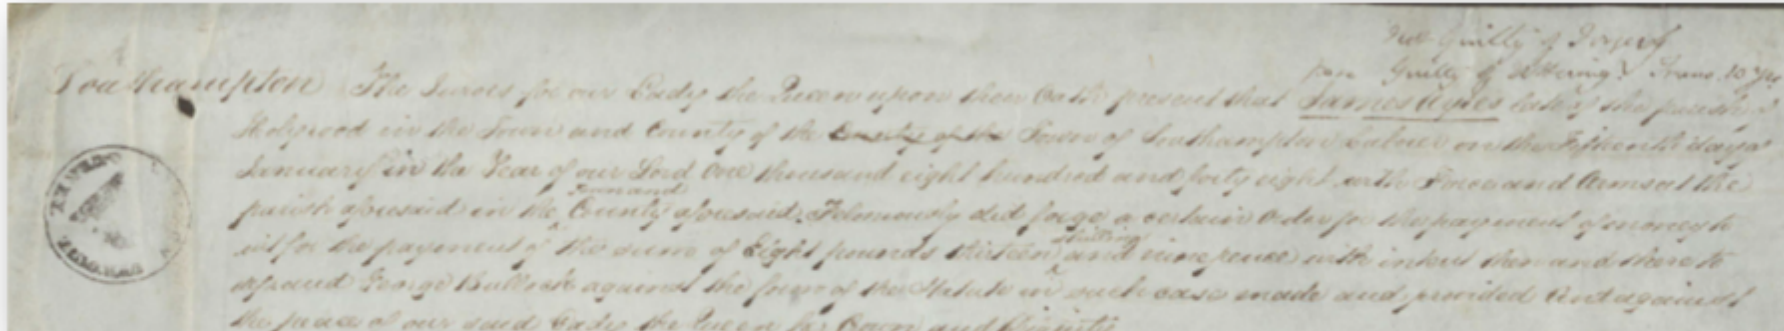 Not Guilty of Forgery
Guilty of Uttering. Trans. 10 Yrs
Southampton The Jurors for our Lady the Queen upon their Oath present that James Ayles late of the parish of
Holyrood in the Town and County of the County of the Town of Southampton Laborer on the Fifteenth day of
January in the Year of our Lord One thousand eight hundred and forty eight with Force and Arms at the
parish aforesaid in the Town and County aforesaid, Feloniously did forge a certain Order for the payment of money to
wit for the payment of the sum of Eight pounds thirteen shillings and nine pence with intent then and there to
defraud George Bullock against the form of the Statute in such case made and provided And against
the peace of our said Lady the Queen her Crown and Dignity